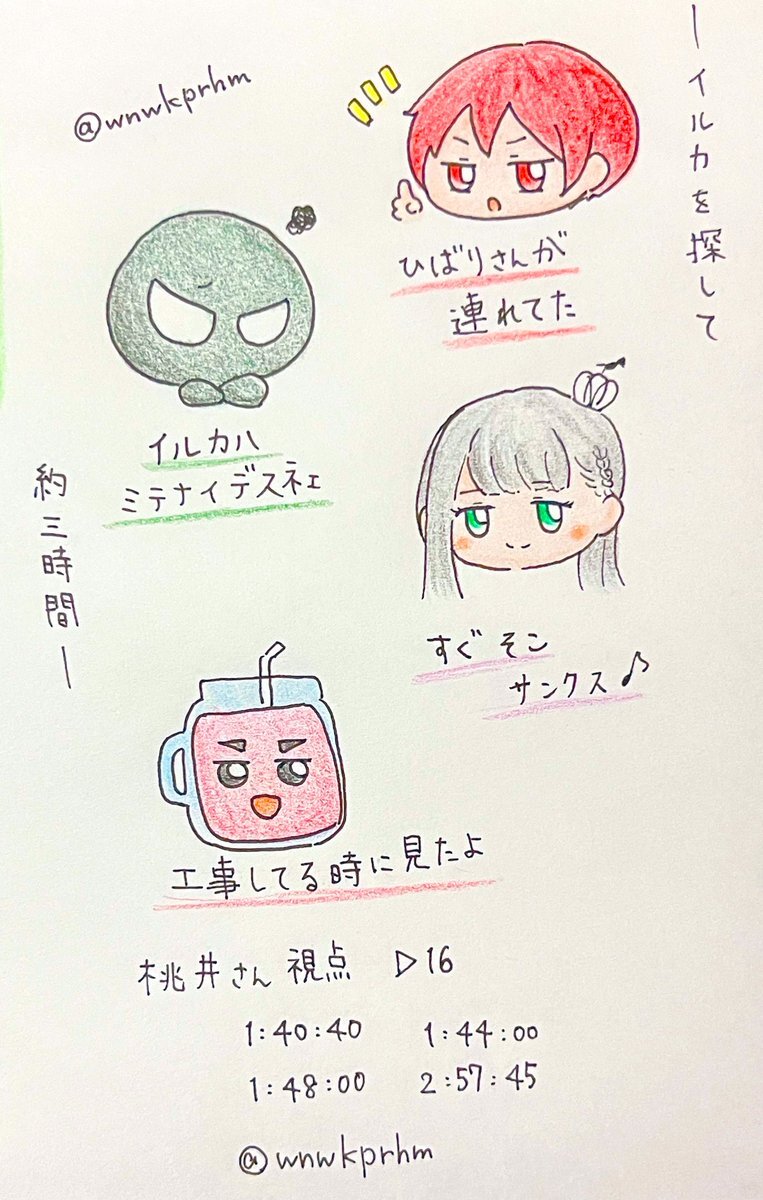 @wnwkprhm
―イルカを探して
ひばりさんが
連れてた
イルカハ
ミテナイデスネェ
約三時間―
すぐそこ
サンクス♪
工事してる時に見たよ
桃井さん 視点 ▷16
1:40:40 1:44:00
1:48:00 2:57:45
@wnwkprhm